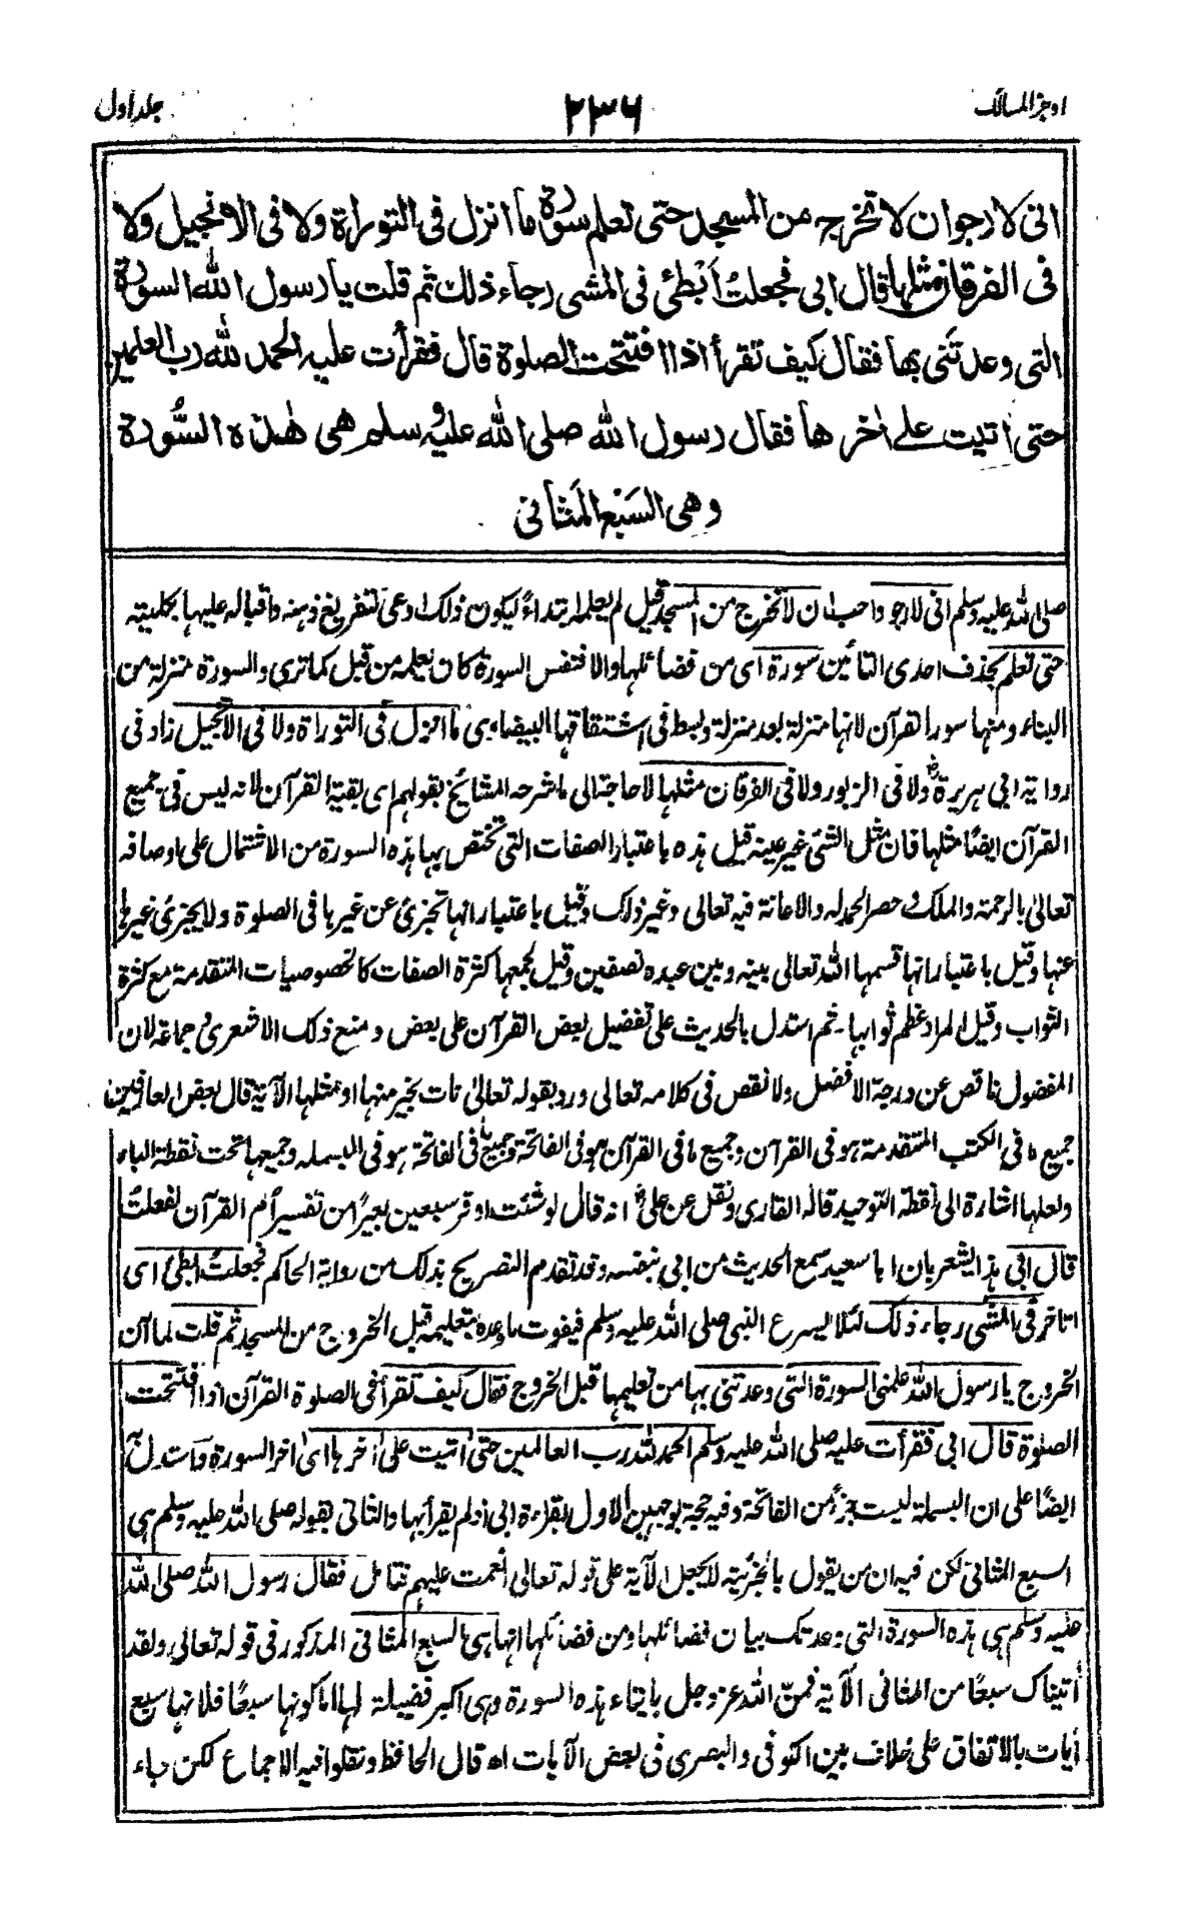 اوجز المسالك
٢٣٦
جلد اول
انى لارجوان لا تخرج من المسجد حتى تعلم سورة ما انزل فى التوراة ولا فى الانجيل ولا
فى الفرقان مثلها قال ابى فجعلتُ اَبْطئ فى المشى رجاء ذلك ثم قلت يا رسول الله السورة
التى وعدتَنى بها فقال كيف تقرأ اذا افتتحت الصلوة قال فقرأت عليه الحمد لله رب العلمين
حتى اتيت على اٰخرها فقال رسول الله صلى الله عليه وسلم هى هٰذه السُّورة
وهى السَبْع المَثانى
صلى الله عليه وسلم انى لارجو واحب ان لا تخرج من المسجد قيل لم يعلمه ابتداءً ليكون ذلك ادعى لتفريغ ذهنه واقباله عليها بكليته
حتى تعلم بحذف احدى التائين سورة اى من فضائلها والا فنفس السورة كان يعلمه من قبل كما ترى والسورة منزلة من
البناء ومنها سور القرآن لانها منزلة بعد منزلة وبسط فى اشتقاقها البيضاوى ما انزل فى التوراة ولا فى الانجيل زاد فى
رواية ابى هريرةؓ ولا فى الزبور ولا فى الفرقان مثلها لا حاجة الى ما شرحه المشائخ بقولهم اى بقية القرآن لانه ليس فى جميع
القرآن ايضًا مثلها فان مثل الشئ غير عينه قيل هذه باعتبار الصفات التى تختص بها هذه السورة من الاشتمال على اوصافه
تعالىٰ بالرحمة والملك وحصر الحمد له والاعانة فيه تعالى وغير ذلك وقيل باعتبار انها تجزئ عن غيرها فى الصلوة ولا يجزئ غيرها
عنها وقيل باعتبار انها قسمها الله تعالى بينه وبين عبده نصفين وقيل لجمعها كثرة الصفات كالخصوصيات المتقدمة مع كثرة
الثواب وقيل المراد عظم ثوابها۔ ثم استدل بالحديث على تفضيل بعض القرآن على بعض ومنع ذلك الاشعرى وجماعة لان
المفضول ناقص عن درجة الافضل ولا نقص فى كلامه تعالى ورد بقوله تعالىٰ نات بخير منها او مثلها الآية قال بعض العارفين
جميع ما فى الكتب المتقدمة هو فى القرآن وجميع ما فى القرآن هو فى الفاتحة وجميع ما فى الفاتحة هو فى البسمله وجميعها تحت نقطة الباء
ولعلها اشارة الى نقطة التوحيد قاله القارى ونقل عن علىؓ انه قال لو شئت اوقر سبعين بعيرًا من تفسير اُم القرآن لفعلتُ
قال ابى هذا يشعر بان ابا سعيد سمع الحديث من ابى بنفسه وقد تقدم التصريح بذلك من رواية الحاكم فجعلتُ ابطئ اى
اتاخر فى المشى رجاء ذلك لئلا يسرع النبى صلى الله عليه وسلم فيفوت ما وعده بتعليمه قبل الخروج من المسجد ثم قلت لما آن
الخروج يا رسول الله علمنى السورة التى وعدتنى بها من تعليمها قبل الخروج فقال كيف تقرأ فى الصلوة القرآن اذا افتتحت
الصلوة قال ابى فقرأت عليه صلى الله عليه وسلم الحمد لله رب العالمين حتى اتيت على اٰخرها اى اٰخر السورة واستدل به
ايضًا على ان البسملة ليست جزءً من الفاتحة وفيه حجة بوجهين الاول بقراءة ابى اذ لم يقرأ بها والثانى بقوله صلى الله عليه وسلم هى
السبع المثانى لكن فيه ان من يقول بالجزئية لا يجعل الآية على قوله تعالى انعمت عليهم فتامل فقال رسول الله صلى الله
عليه وسلم هى هذه السورة التى وعدتك بيان فضائلها ومن فضائلها انها هى السبع المثانى المذكور فى قوله تعالى ولقد
اٰتيناك سبعًا من المثانى الآية فمنّ الله عزوجل بايتاء هذه السورة وهى اكبر فضيلة لها اما كونها سبعًا فلانها سبع
اٰيات بالاتفاق على خلاف بين الكوفى والبصرى فى بعض الآيات اھ قال الحافظ ونقلوا فيه الاجماع لكن جاء